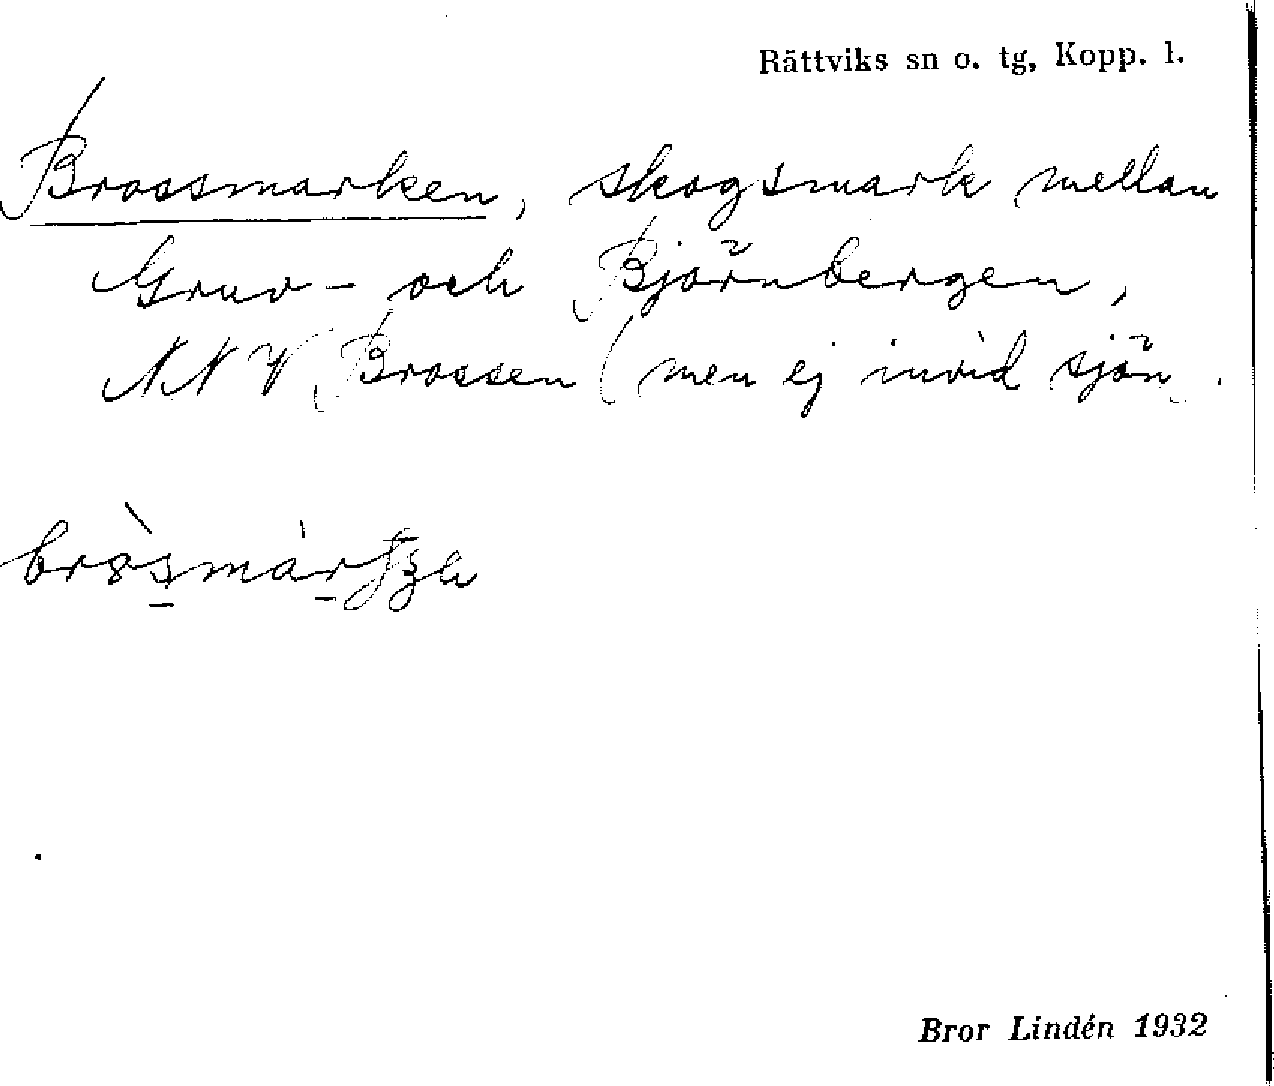 Rättviks sn o. tg, Kopp. l.
Brossmarken, skogsmark mellan
Gruv- och Björnbergen,
NNV Brossen (men ej invid sjön.
Bror Lindén 1932